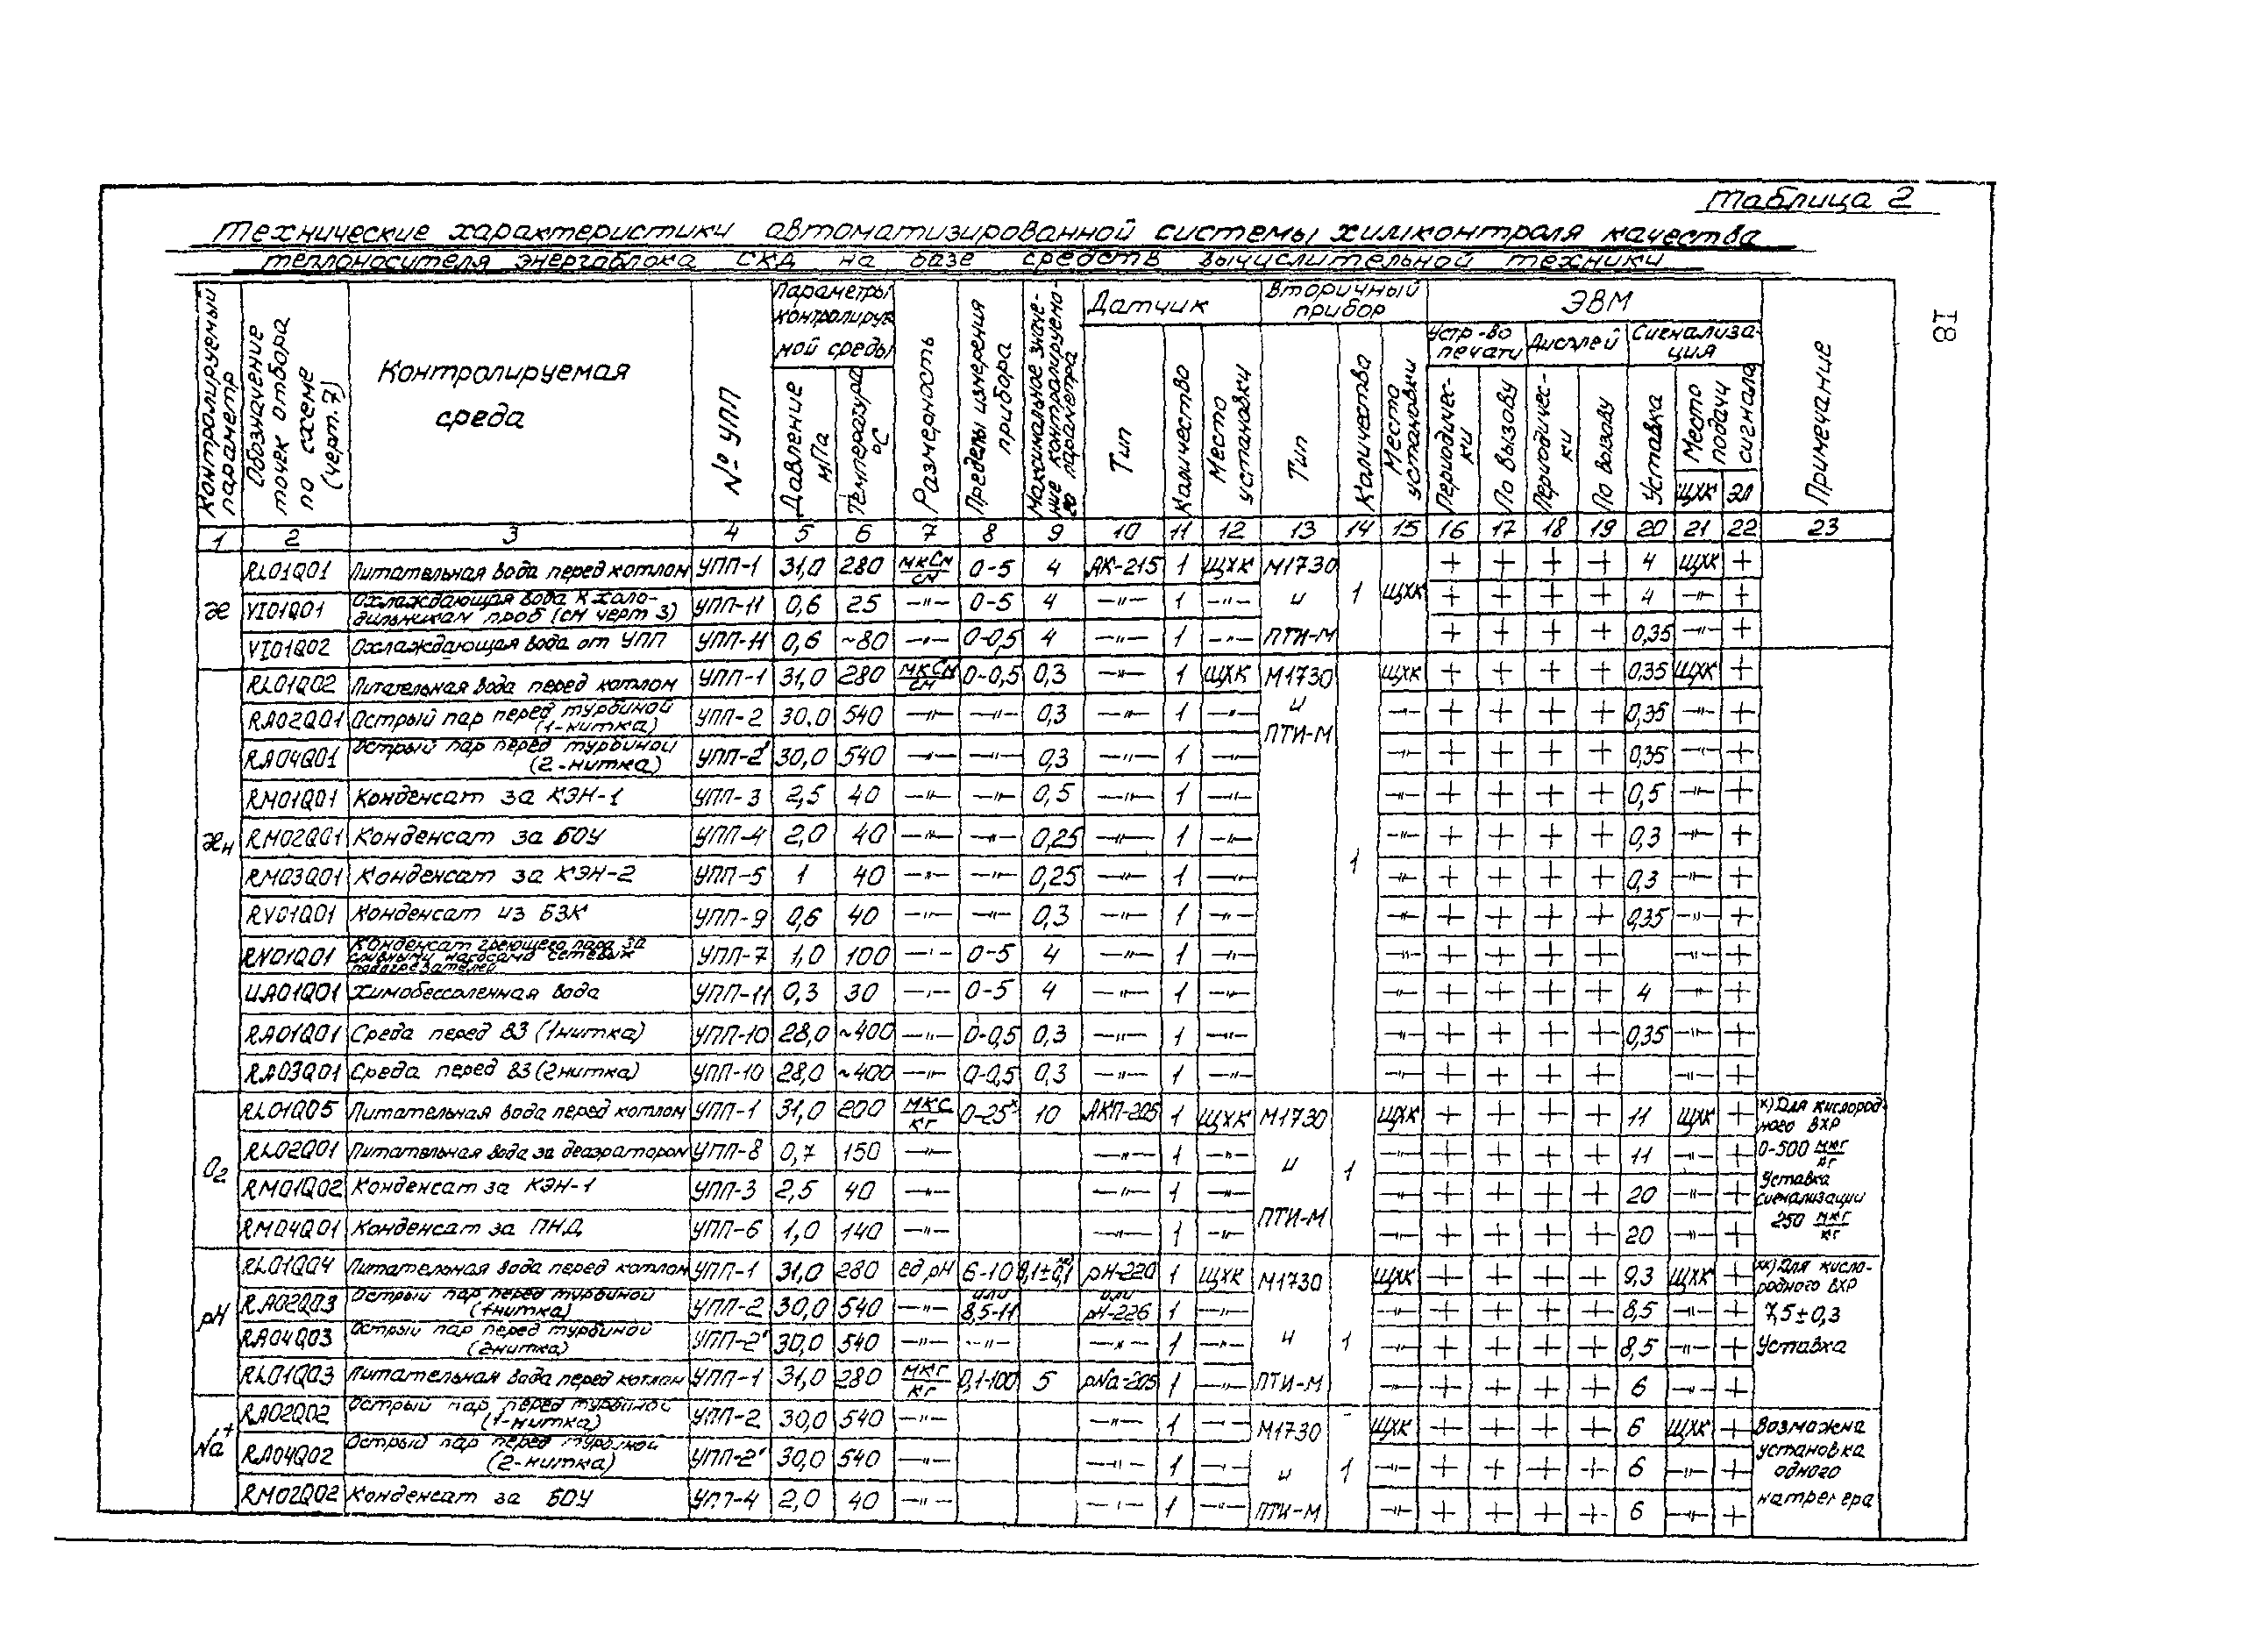 Таблица 2
Технические характеристики автоматизированной системы химконтроля качества
теплоносителя энергоблока СКД на базе средств вычислительной техники
18
Контролируемый параметр
Обозначение точек отбора по схеме (черт.7)
Контролируемая среда
№ УПП
Параметры контролируе мой среды
Давление мПа
Температура °С
Размерность
Пределы измерения прибора
Максимальное значение контролируемого параметра
Датчик
Тип
Количество
Место установки
Вторичный прибор
Тип
Количества
Место установки
ЭВМ
Устр-во печати
Периодически
По вызову
Дисплей
Периодически
По вызову
Сигнализация
Уставка
Место подачи сигнала
ЩХК
ЭЛ
Примечание
1 2 3 4 5 6 7 8 9 10 11 12 13 14 15 16 17 18 19 20 21 22 23
æ
RL01Q01 Питательная вода перед котлом УПП-1 31,0 280 мкСм/см 0-5 4 АК-215 1 ЩХК М1730 и ПТИ-М 1 ЩХК + + + + 4 ЩХК +
VI01Q01 Охлаждающая вода к холодильникам проб (см черт 3) УПП-11 0,6 25 —"— 0-5 4 —"— 1 —"— + + + + 4 —"— +
VI01Q02 Охлаждающая вода от УПП УПП-11 0,6 ~80 —"— 0-0,5 4 —"— 1 —"— + + + + 0,35 —"— +
æн
RL01Q02 Питательная вода перед котлом УПП-1 31,0 280 мкСм/см 0-0,5 0,3 —"— 1 ЩХК М1730 и ПТИ-М 1 ЩХК + + + + 0,35 ЩХК +
RA02Q01 Острый пар перед турбиной (1-нитка) УПП-2 30,0 540 —"— —"— 0,3 —"— 1 —"— —"— + + + + 0,35 —"— +
RA04Q01 Острый пар перед турбиной (2-нитка) УПП-2' 30,0 540 —"— —"— 0,3 —"— 1 —"— —"— + + + + 0,35 —"— +
RM01Q01 Конденсат за КЭН-1 УПП-3 2,5 40 —"— —"— 0,5 —"— 1 —"— —"— + + + + 0,5 —"— +
RM02Q01 Конденсат за БОУ УПП-4 2,0 40 —"— —"— 0,25 —"— 1 —"— —"— + + + + 0,3 —"— +
RM03Q01 Конденсат за КЭН-2 УПП-5 1 40 —"— —"— 0,25 —"— 1 —"— —"— + + + + 0,3 —"— +
RV01Q01 Конденсат из БЗК УПП-9 0,6 40 —"— —"— 0,3 —"— 1 —"— —"— + + + + 0,35 —"— +
RN01Q01 Конденсат греющего пара за сливными насосами сетевых подогревателей УПП-7 1,0 100 —"— 0-5 4 —"— 1 —"— —"— + + + + —"— +
UA01Q01 Химобессоленная вода УПП-11 0,3 30 —"— 0-5 4 —"— 1 —"— —"— + + + + 4 —"— +
RA01Q01 Среда перед ВЗ (1нитка) УПП-10 28,0 ~400 —"— 0-0,5 0,3 —"— 1 —"— —"— + + + + 0,35 —"— +
RA03Q01 Среда перед ВЗ (2нитка) УПП-10 28,0 ~400 —"— 0-0,5 0,3 —"— 1 —"— —"— + + + + —"— +
O2
RL01Q05 Питательная вода перед котлом УПП-1 31,0 200 мкс/кг 0-25ˣ 10 АКП-205 1 ЩХК М1730 и ПТИ-М 1 ЩХК + + + + 11 ЩХК + х) Для кислородного ВХР
RL02Q01 Питательная вода за деаэратором УПП-8 0,7 150 —"— —"— 1 —"— —"— + + + + 11 —"— + 0-500 мкг/кг
RM01Q02 Конденсат за КЭН-1 УПП-3 2,5 40 —"— —"— 1 —"— —"— + + + + 20 —"— + Уставка сигнализации
RM04Q01 Конденсат за ПНД УПП-6 1,0 140 —"— —"— 1 —"— + + + + 20 —"— + 250 мкг/кг
pH
RL01Q04 Питательная вода перед котлом УПП-1 31,0 280 ед pH 6-10 или 8,5-11 9,1±0,1ˣˣ⁾ pH-220 или pH-226 1 ЩХК М1730 и ПТИ-М 1 ЩХК + + + + 9,3 ЩХК + хх) Для кислородного ВХР
RA02Q03 Острый пар перед турбиной (1нитка) УПП-2 30,0 540 —"— 1 —"— —"— + + + + 8,5 —"— + 7,5±0,3
RA04Q03 Острый пар перед турбиной (2нитка) УПП-2' 30,0 540 —"— —"— —"— 1 —"— —"— + + + + 8,5 —"— + Уставка
RL01Q03 Питательная вода перед котлом УПП-1 31,0 280 мкг/кг 0,1-100 5 pNa-205 1 —"— —"— + + + + 6 —"— +
Na+
RA02Q02 Острый пар перед турбиной (1-нитка) УПП-2 30,0 540 —"— —"— 1 —"— М1730 и ПТИ-М 1 ЩХК + + + + 6 ЩХК + Возможна
RA04Q02 Острый пар перед турбиной (2-нитка) УПП-2' 30,0 540 —"— —"— 1 —"— —"— + + + + 6 —"— + установка одного
RM02Q02 Конденсат за БОУ УПП-4 2,0 40 —"— —"— 1 —"— —"— + + + + 6 —"— + натрегера